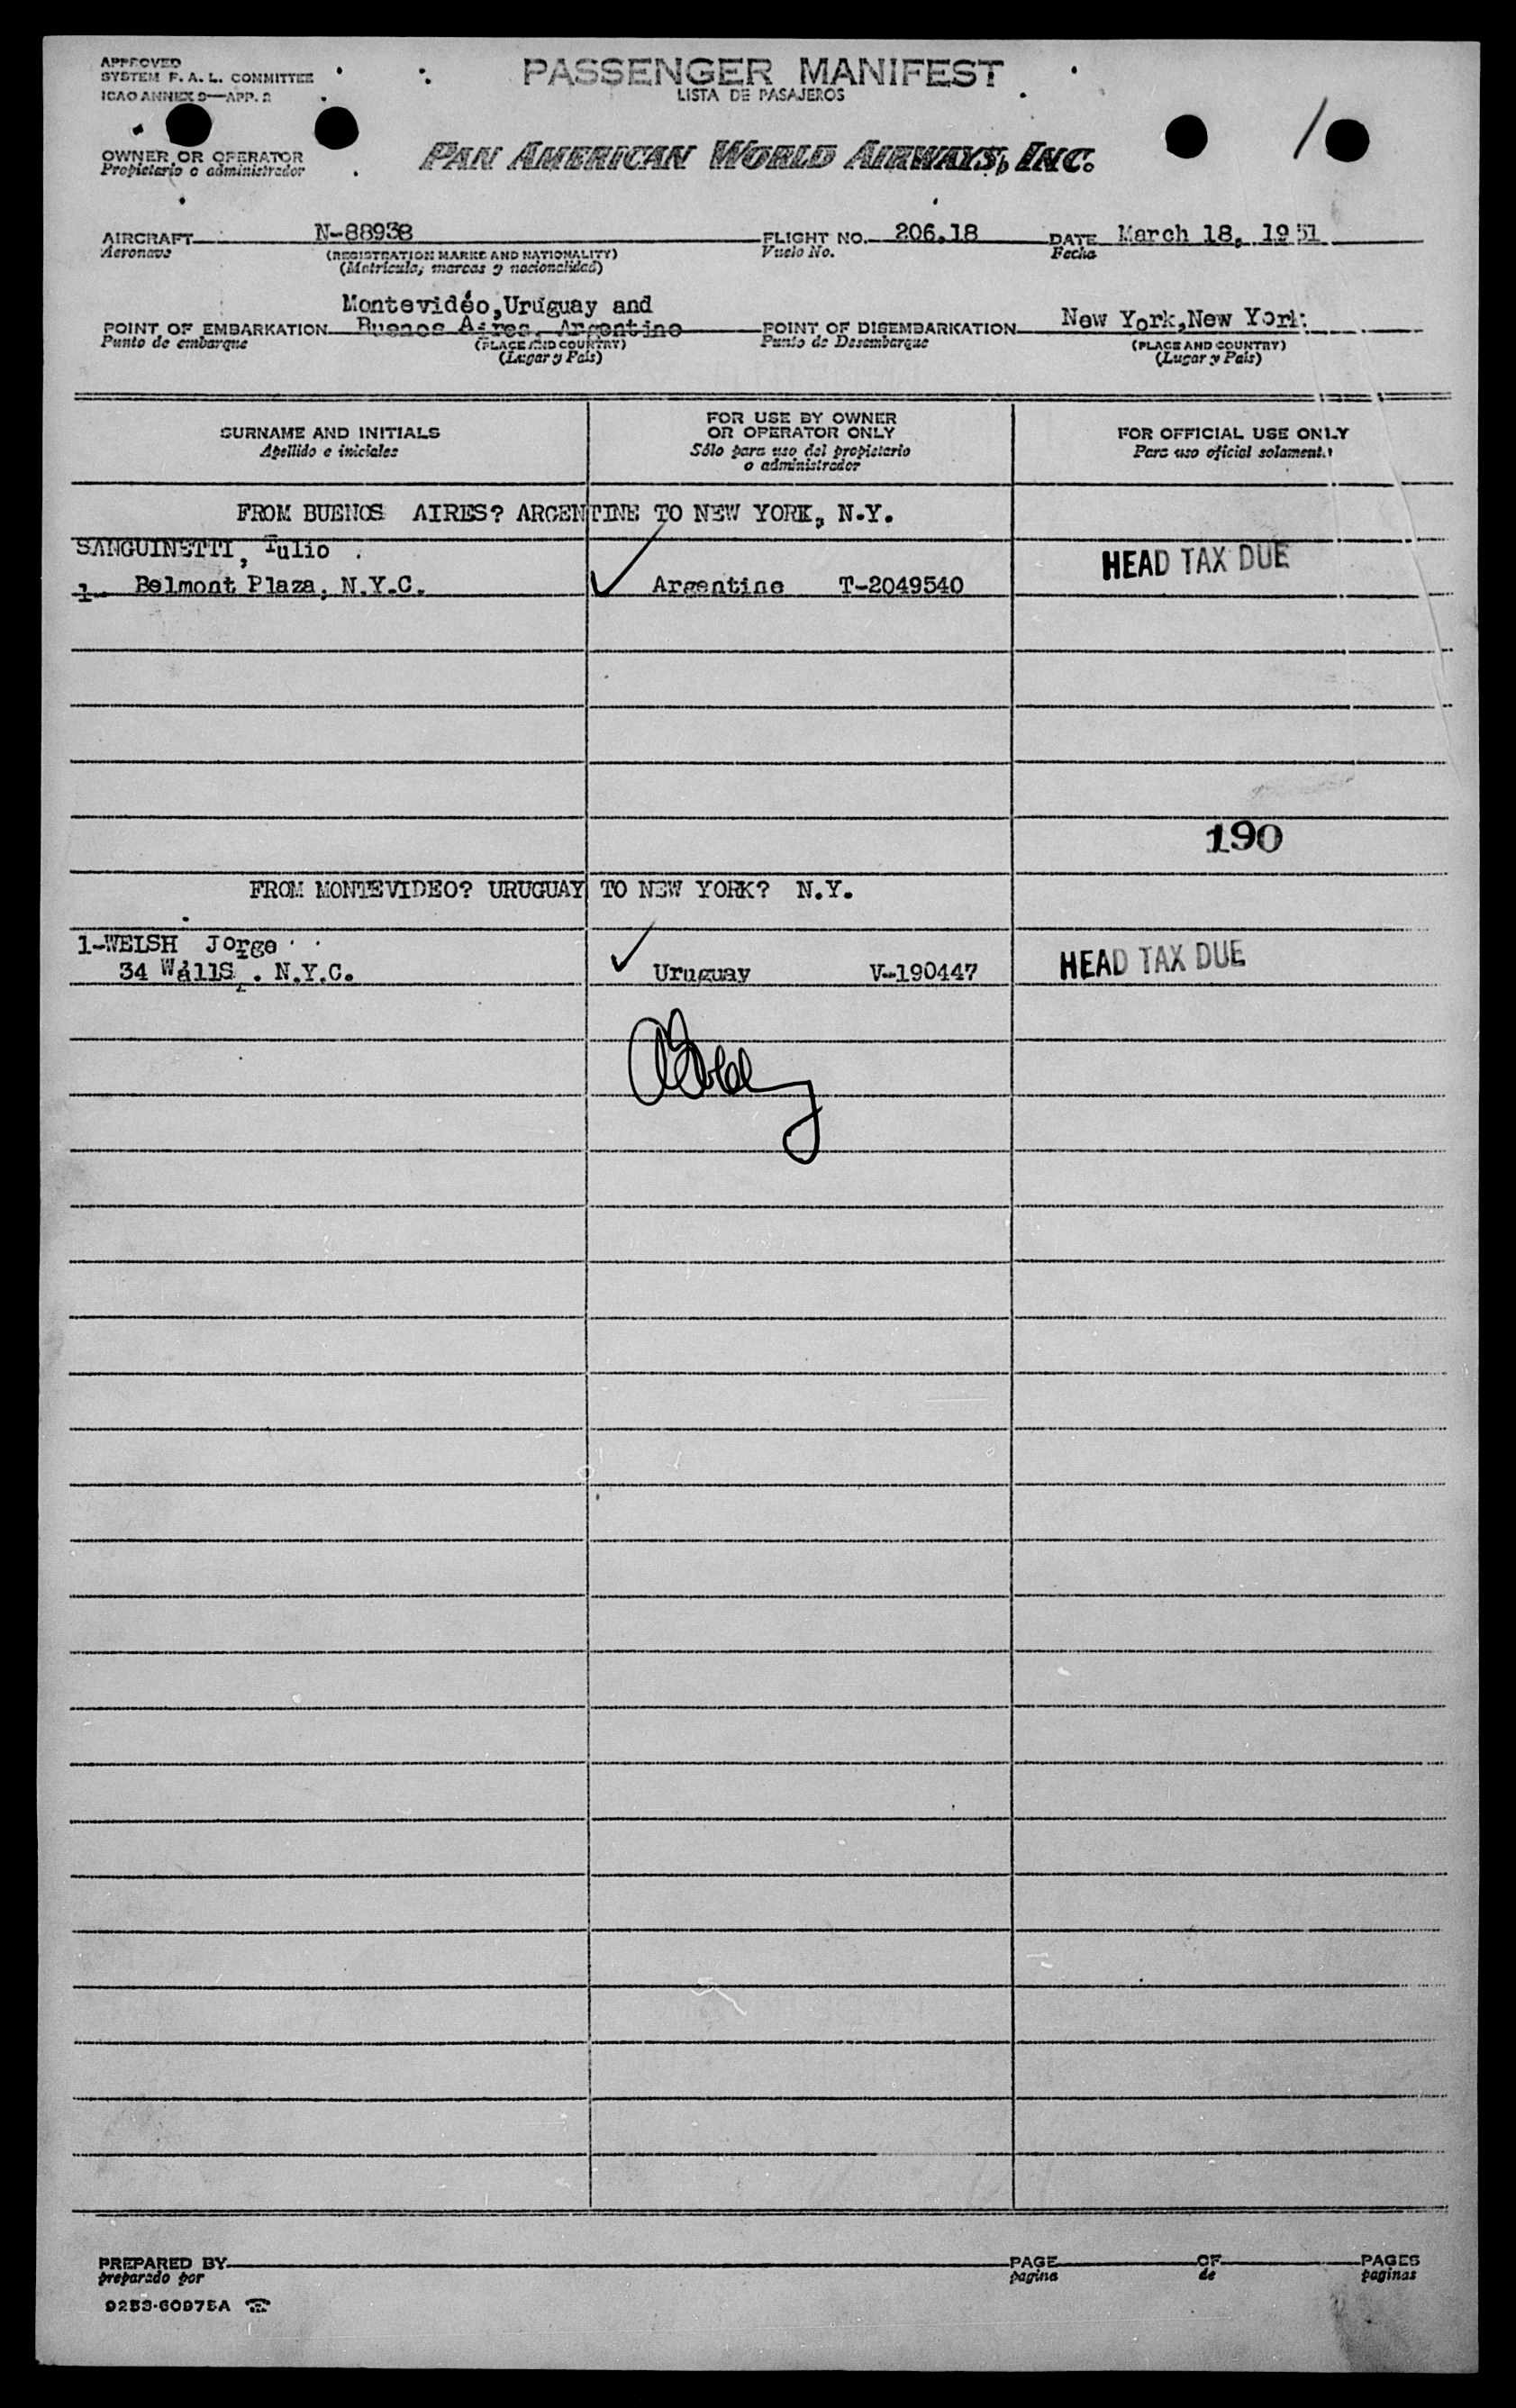 APPROVED
SYSTEM F. A. L. COMMITTEE
ICAO ANNEX 9—APP. 2
PASSENGER MANIFEST
LISTA DE PASAJEROS
OWNER OR OPERATOR
Propietario o administrador
PAN AMERICAN WORLD AIRWAYS, INC.
AIRCRAFT N-88938 FLIGHT NO. 206.18 DATE March 18, 1951
Aeronave (REGISTRATION MARKS AND NATIONALITY) Vuelo No. Fecha
(Matricula, marcas y nacionalidad)
Montevideo,Uruguay and
POINT OF EMBARKATION Buenos Aires, Argentine POINT OF DISEMBARKATION New York,New York
Punto de embarque (PLACE AND COUNTRY) Punto de Desembarque (PLACE AND COUNTRY)
(Lugar y Pais) (Lugar y Pais)
SURNAME AND INITIALS
Apellido e iniciales
FOR USE BY OWNER
OR OPERATOR ONLY
Sólo para uso del propietario
o administrador
FOR OFFICIAL USE ONLY
Para uso oficial solamente
FROM BUENOS AIRES? ARGENTINE TO NEW YORK, N.Y.
SANGUINETTI, Tulio HEAD TAX DUE
1- Belmont Plaza, N.Y.C. Argentine T-2049540
190
FROM MONTEVIDEO? URUGUAY TO NEW YORK? N.Y.
1-WELSH Jorge HEAD TAX DUE
34 WallS . N.Y.C. Uruguay V-190447
PREPARED BY PAGE OF PAGES
preparado por pagina de paginas
9253-60975A